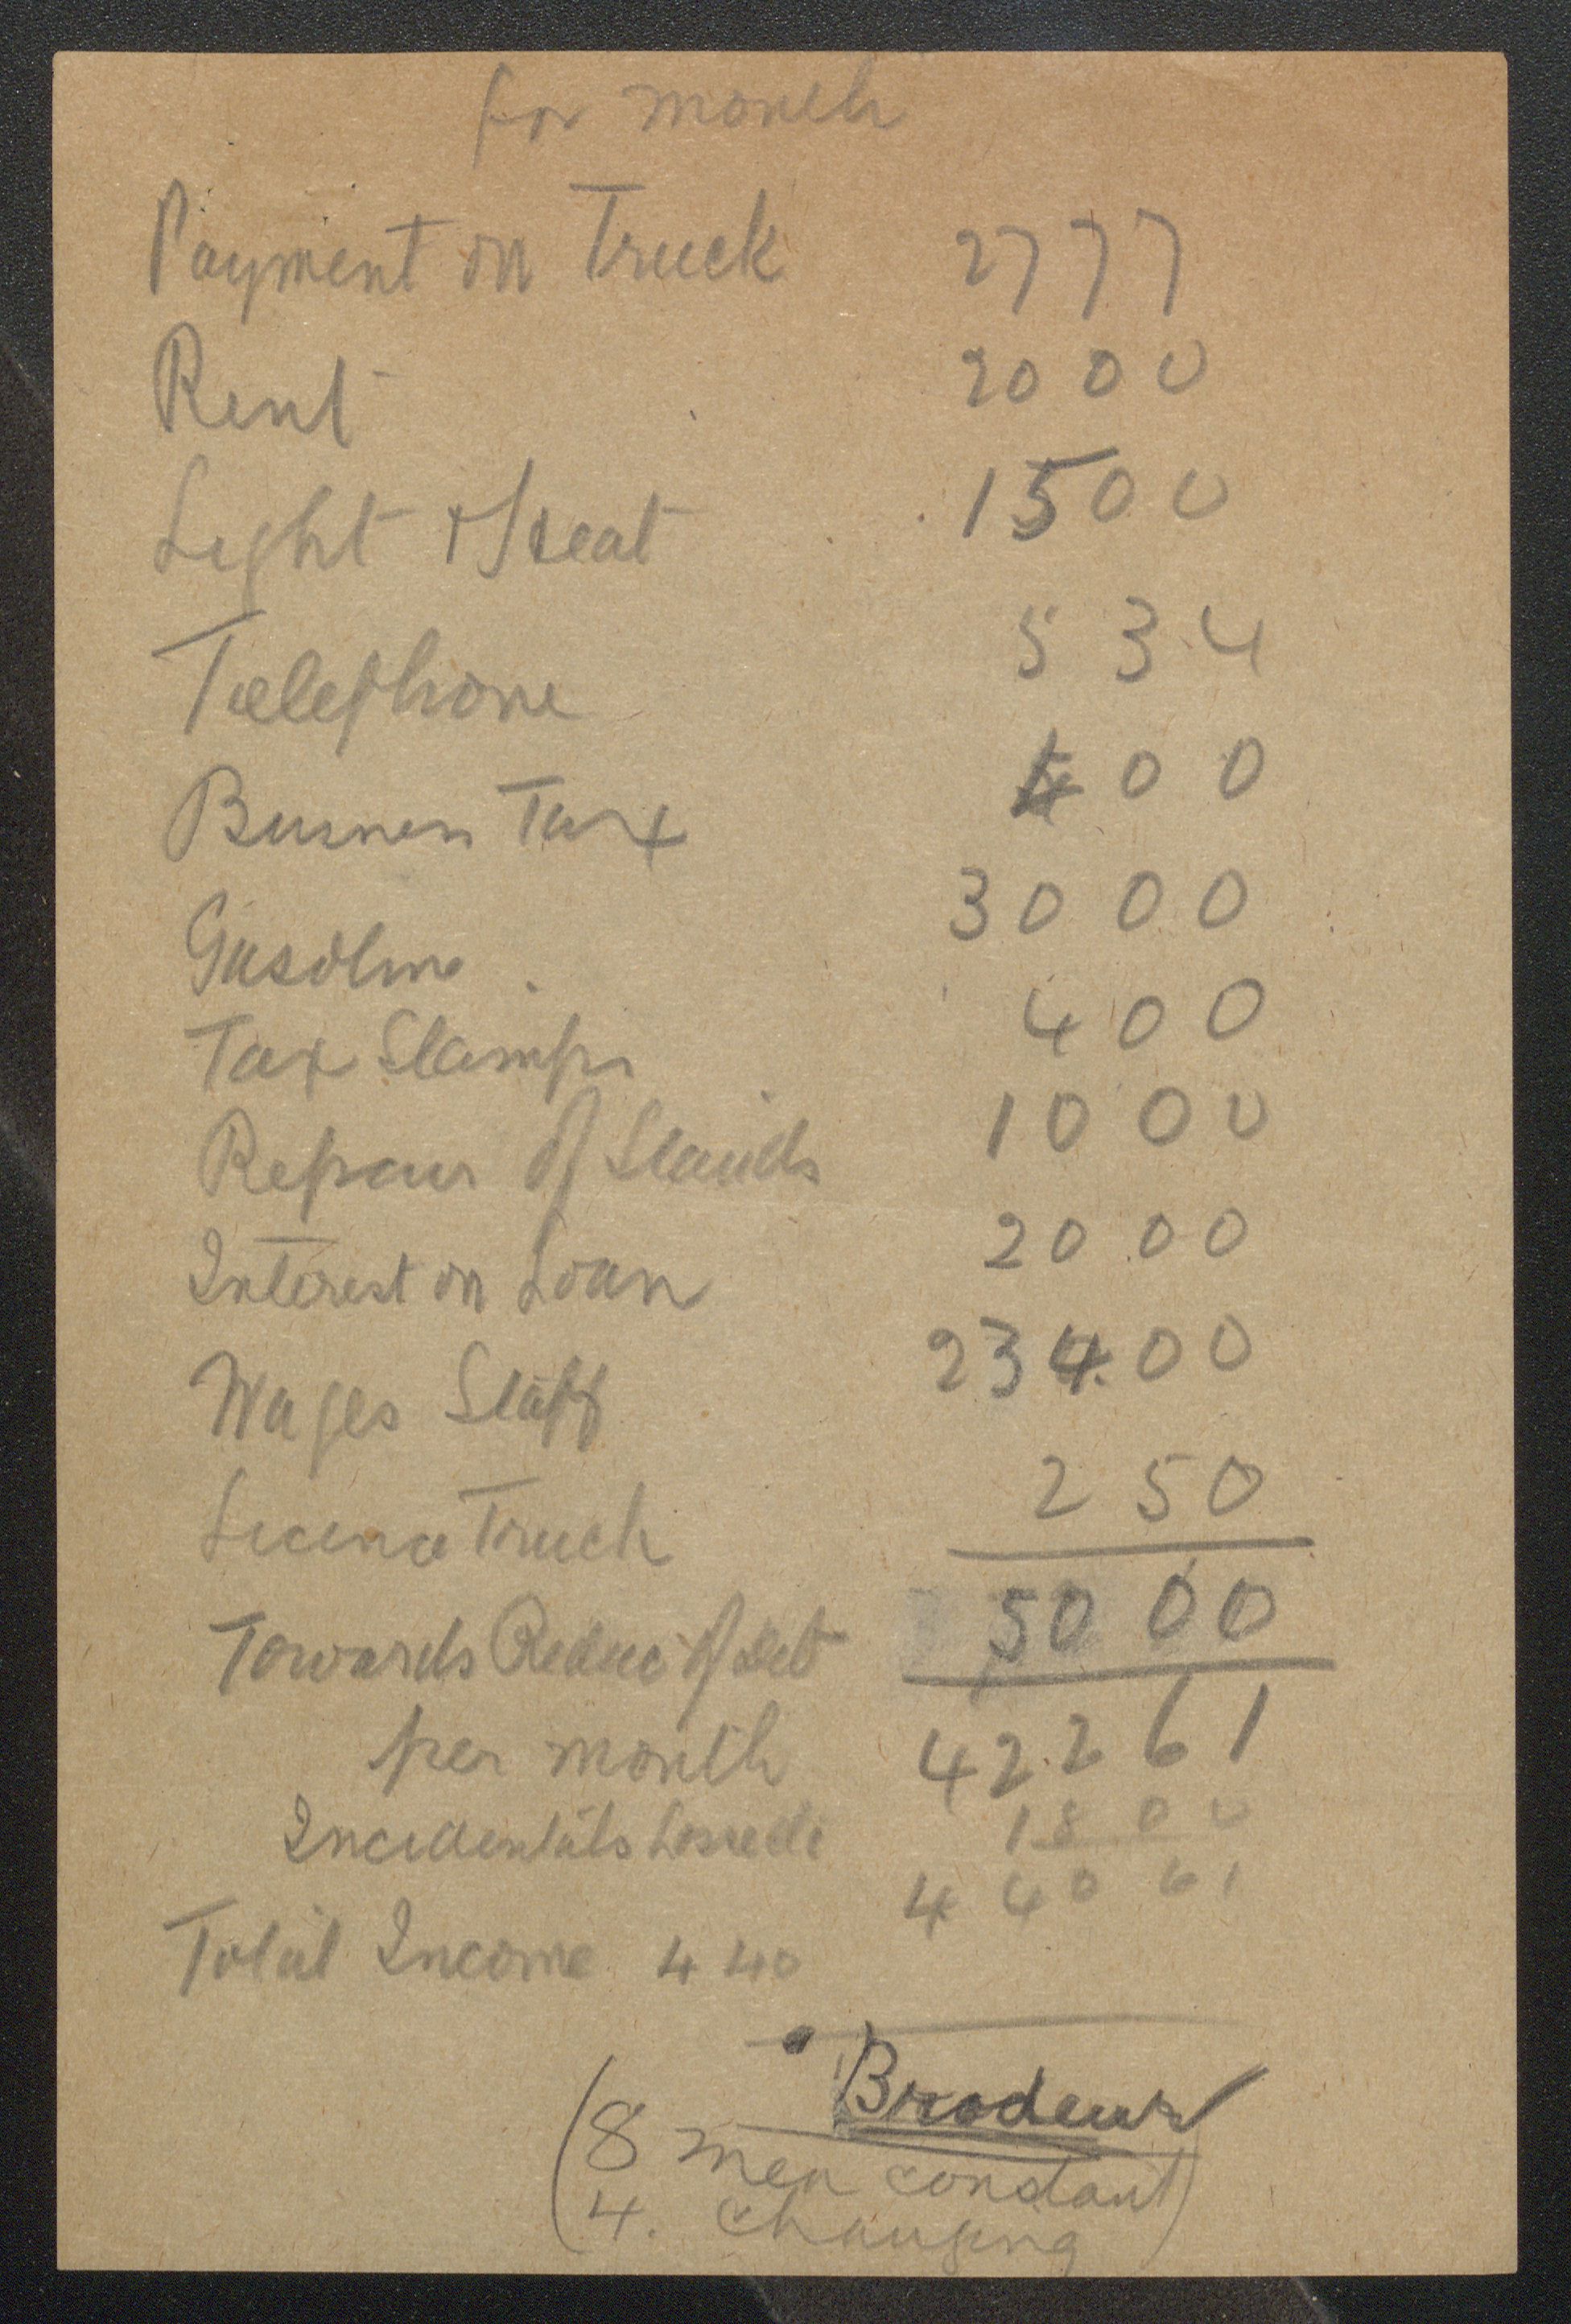 for month
Payment on Truck 2777
Rent 2000
Light & Heat 1500
Telephone 534
Business Tax 400
Gasoline 3000
Tax Stamps 400
Repairs of Stands 1000
Interest on Loan 2000
Wages Staff 23400
Licence Truck 250
Towards Reduc of Deb 5000
per month 42261
Incidentals 1800
44061
Total Income 440
Brodeur
(8 men constant)
(4. changing)